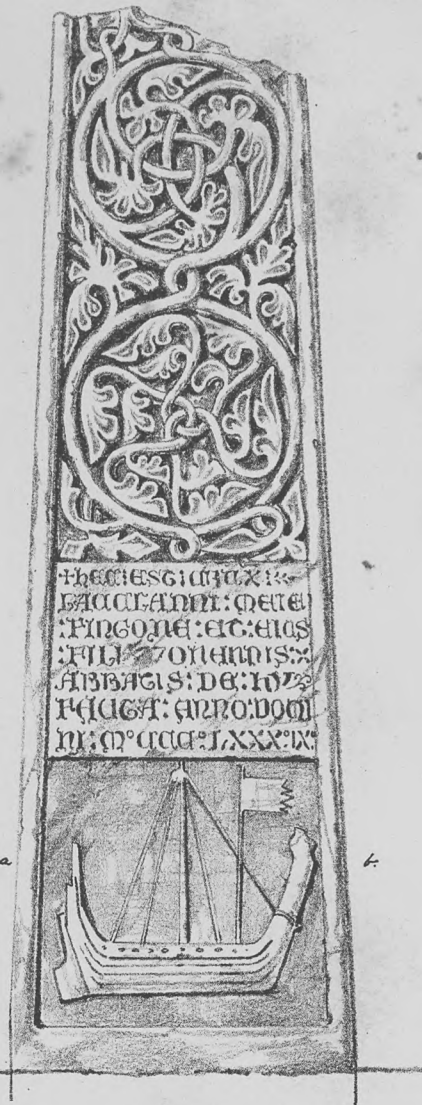 +HEC:EST:CRUX:
LACCLANNI:MEIC
:FINGONE:ET:EIUS
:FILII:IOHANNIS:
ABBATIS:DE:HY:
FACTA:ANNO:DOMI
NI:M°CCCC°LXXX°IX°
a
b.